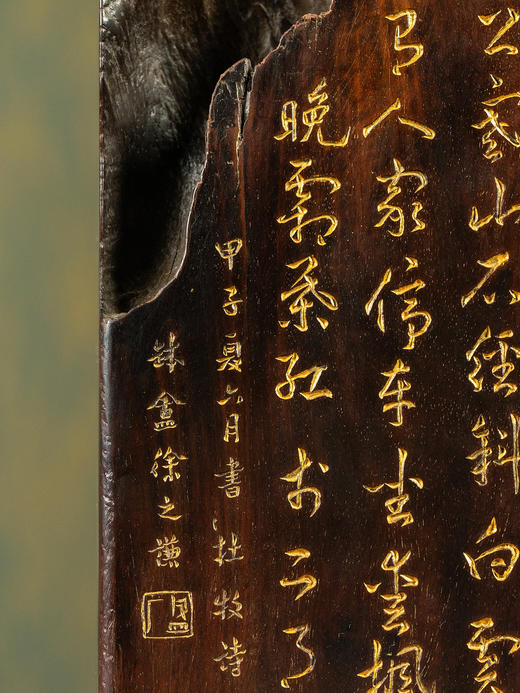 上寒山石徑斜白雲
有人家停車坐愛楓
晚霜葉紅於二月
甲子夏六月書杜牧詩
鉢盦徐之謙